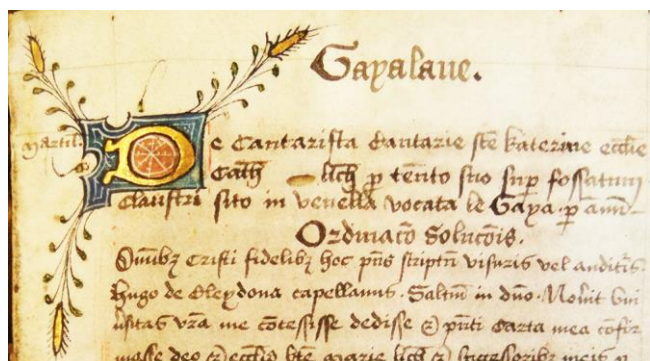 Gayalane.
Martil. De Cantarista Cantarie sce Katerine ecclie
Cath lich p tento suo sup fossatum
Claustri sito in venella vocata le Gaya p ann
Ordinaco Solucois.
Omibz Cristi fidelibz hoc pns scriptu visuris vel audituris
Hugo de capellanus. Saltm in dno. Novit
vra me cocessisse dedisse & pnti Carta mea confir
masse deo & ecclie bte marie lich & successoribz meis